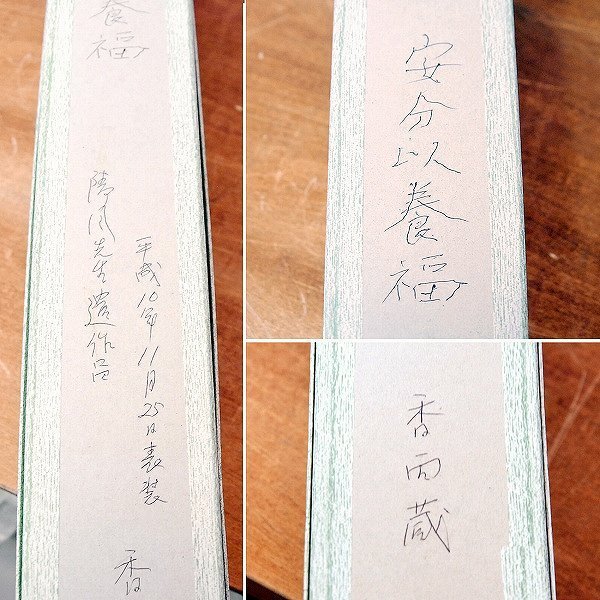 養福
平成10年11月25日表装
先生遺作品
香
安分以養福
香雨蔵